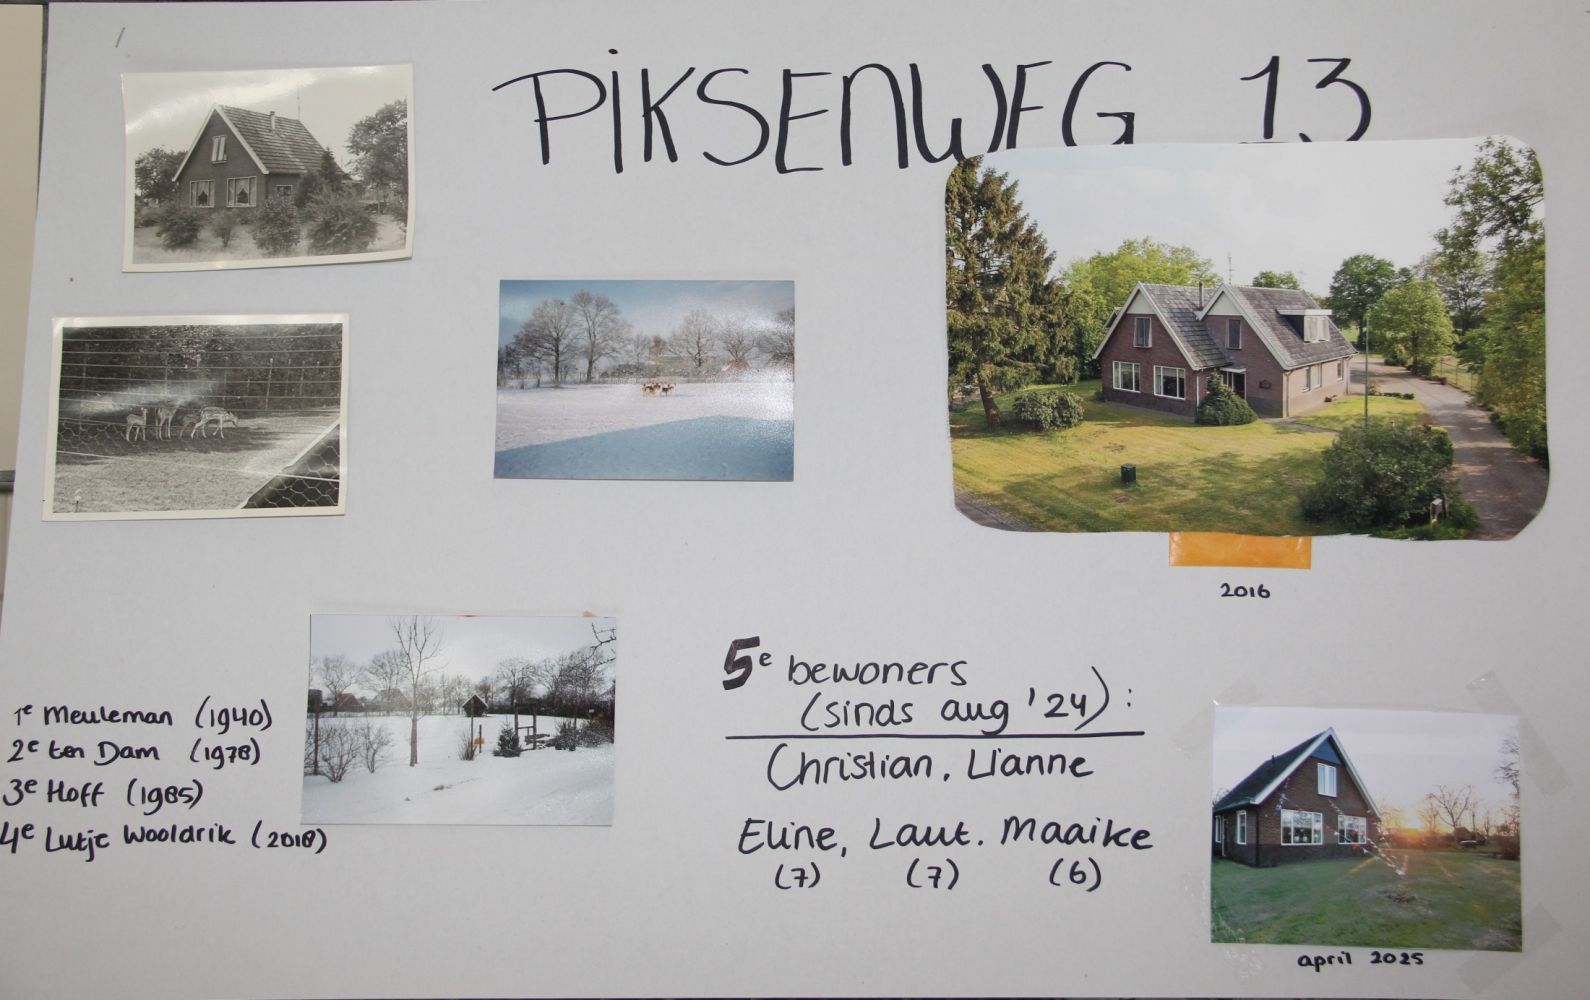 PiKSENWEG 13
2016
1e Meuleman (1940)
2e ten Dam (1978)
3e Hoff (1985)
4e Lutje Wooldrik (2018)
5e bewoners
(sinds aug '24):
Christian, Lianne
Eline, Laut. Maaike
(7) (7) (6)
april 2025